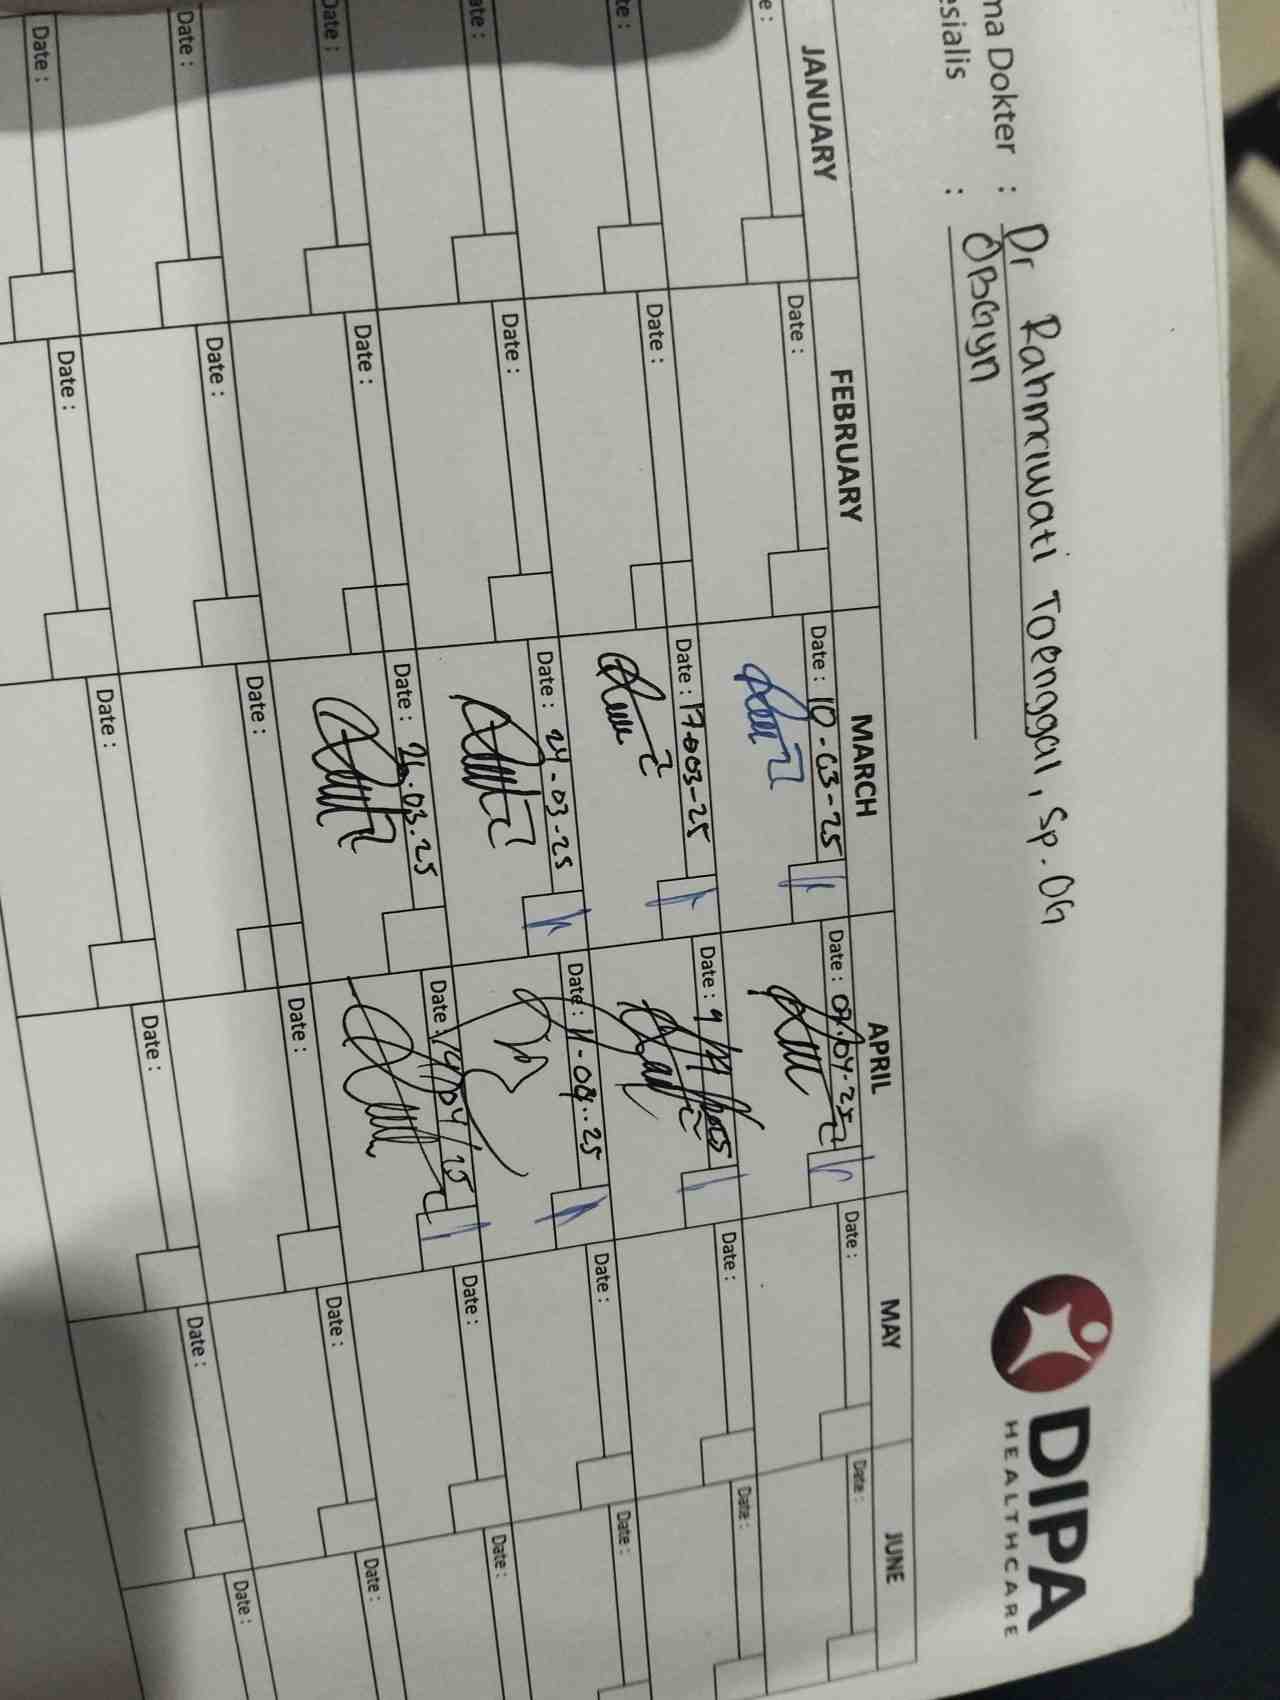 DIPA
HEALTHCARE
ma Dokter : Dr Rahmawati Toenggal, Sp. OG
esialis : OBGyn
JANUARY FEBRUARY MARCH APRIL MAY JUNE
e : Date : Date : 10-03-25 Date : 09-04-25 Date : Date :
te : Date : Date : 17-03-25 Date : 9 Date : Date :
ate : Date : Date : 24-03-25 Date : 11-04.25 Date : Date :
Date : Date : Date : 26.03.25 Date : 14/04/25 Date : Date :
Date : Date : Date : Date : Date : Date :
Date : Date : Date : Date : Date : Date :